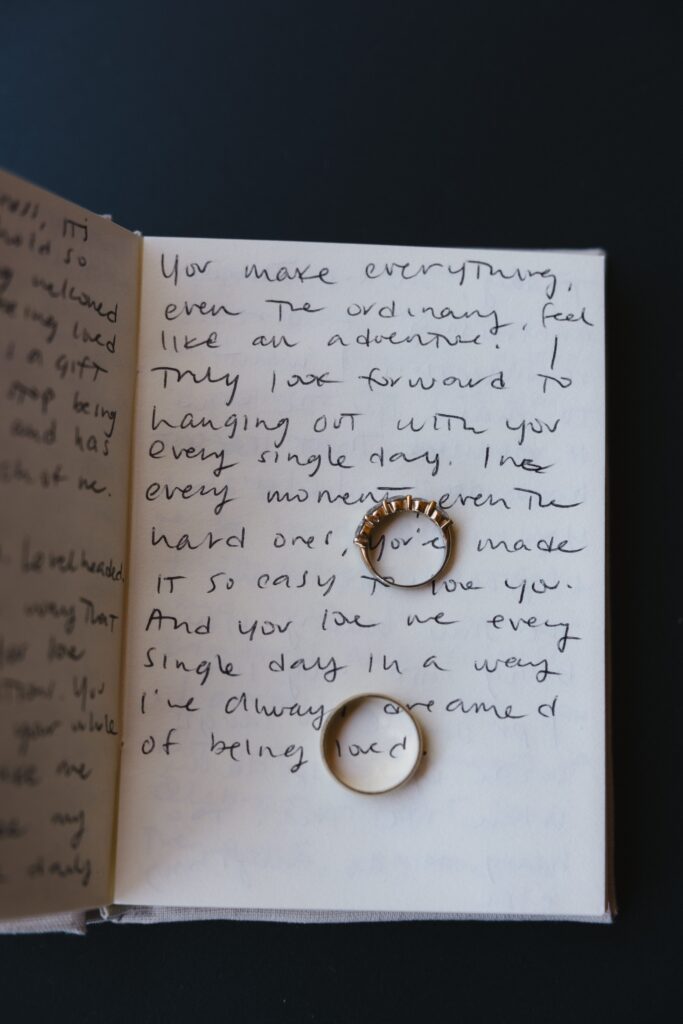 it's
so
welcomed
being loved
a gift
stop being
and has
of me.
levelheaded.
way that
love
You
your whole
me
my
daily
You make everything,
even the ordinary, feel
like an adventure. I
truly look forward to
hanging out with you
every single day. In
every moment, even the
hard ones, you've made
it so easy to love you.
And you love me every
single day in a way
i've always dreamed
of being loved.